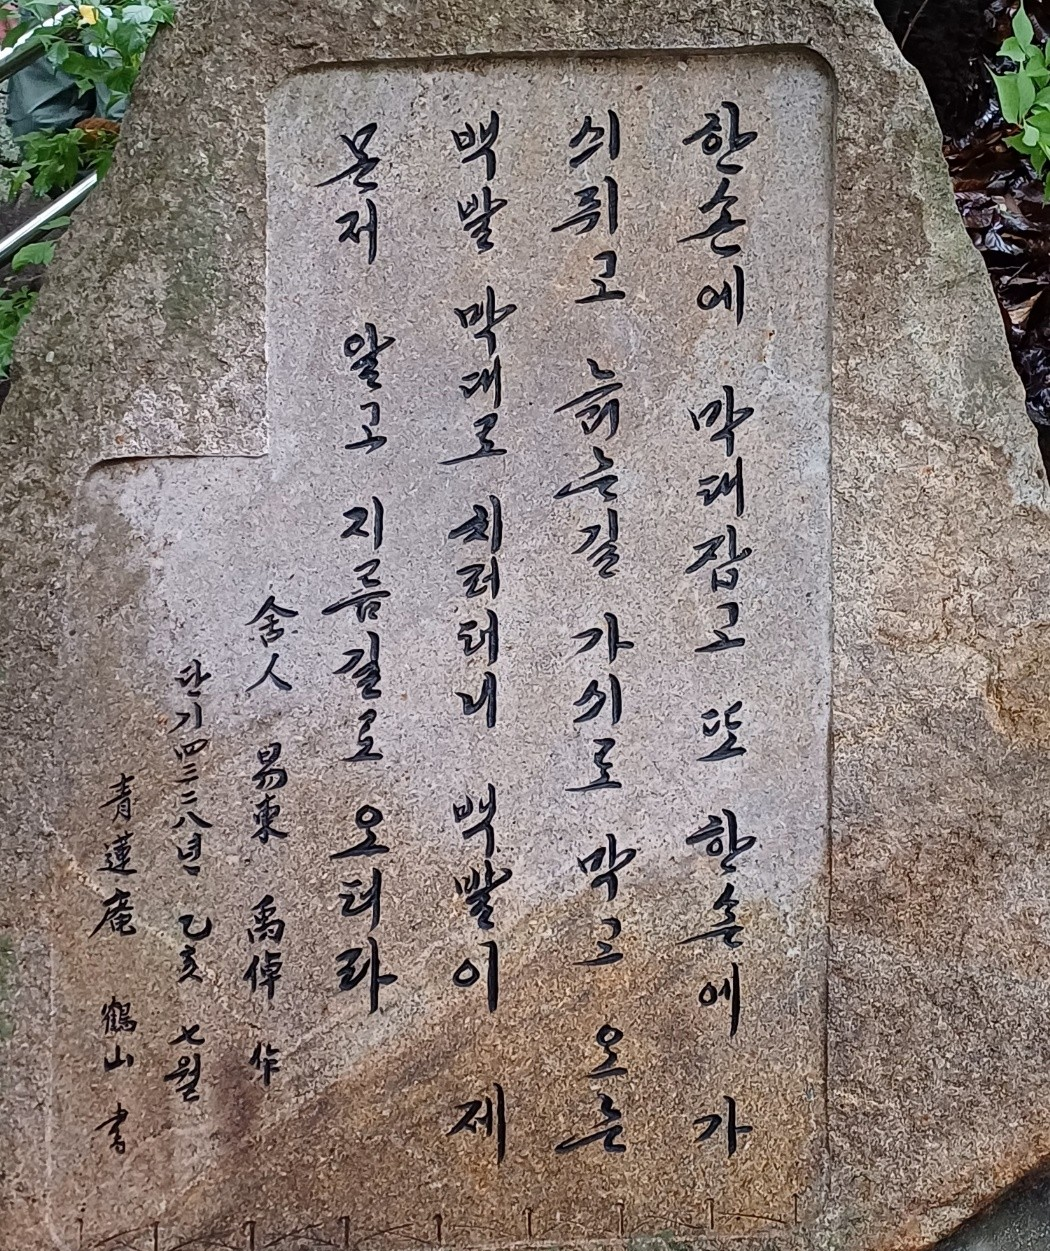 한손에 막대잡고 또 한손에 가
싀쥐고 늙는길 가싀로 막고 오는
백발 막대로 치러터니 백발이 제
몬저 알고 지름길로 오더라
舍人 易東 禹倬 作
단기四三二八년 乙亥 七월
靑蓮庵 鶴山 書